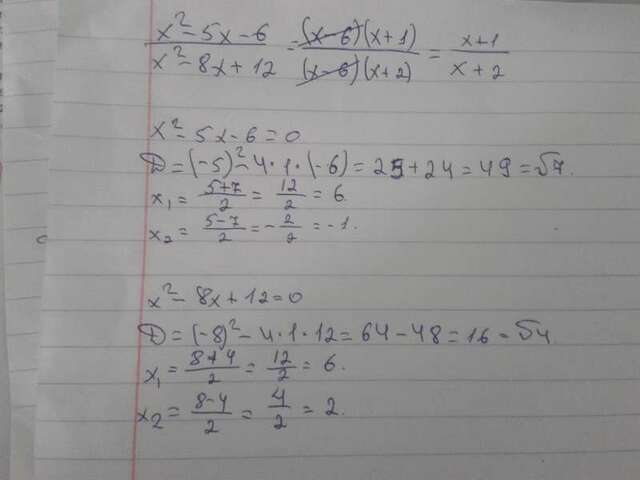 x² - 5x - 6 / x² - 8x + 12 = (x - 6)(x + 1) / (x - 6)(x + 2) = x + 1 / x + 2
x² - 5x - 6 = 0
D = (-5)² - 4 · 1 · (-6) = 25 + 24 = 49 = √7.
x₁ = 5+7 / 2 = 12 / 2 = 6.
x₂ = 5-7 / 2 = - 2 / 2 = -1.
x² - 8x + 12 = 0
D = (-8)² - 4 · 1 · 12 = 64 - 48 = 16 = √4
x₁ = 8+4 / 2 = 12 / 2 = 6.
x₂ = 8-4 / 2 = 4 / 2 = 2.